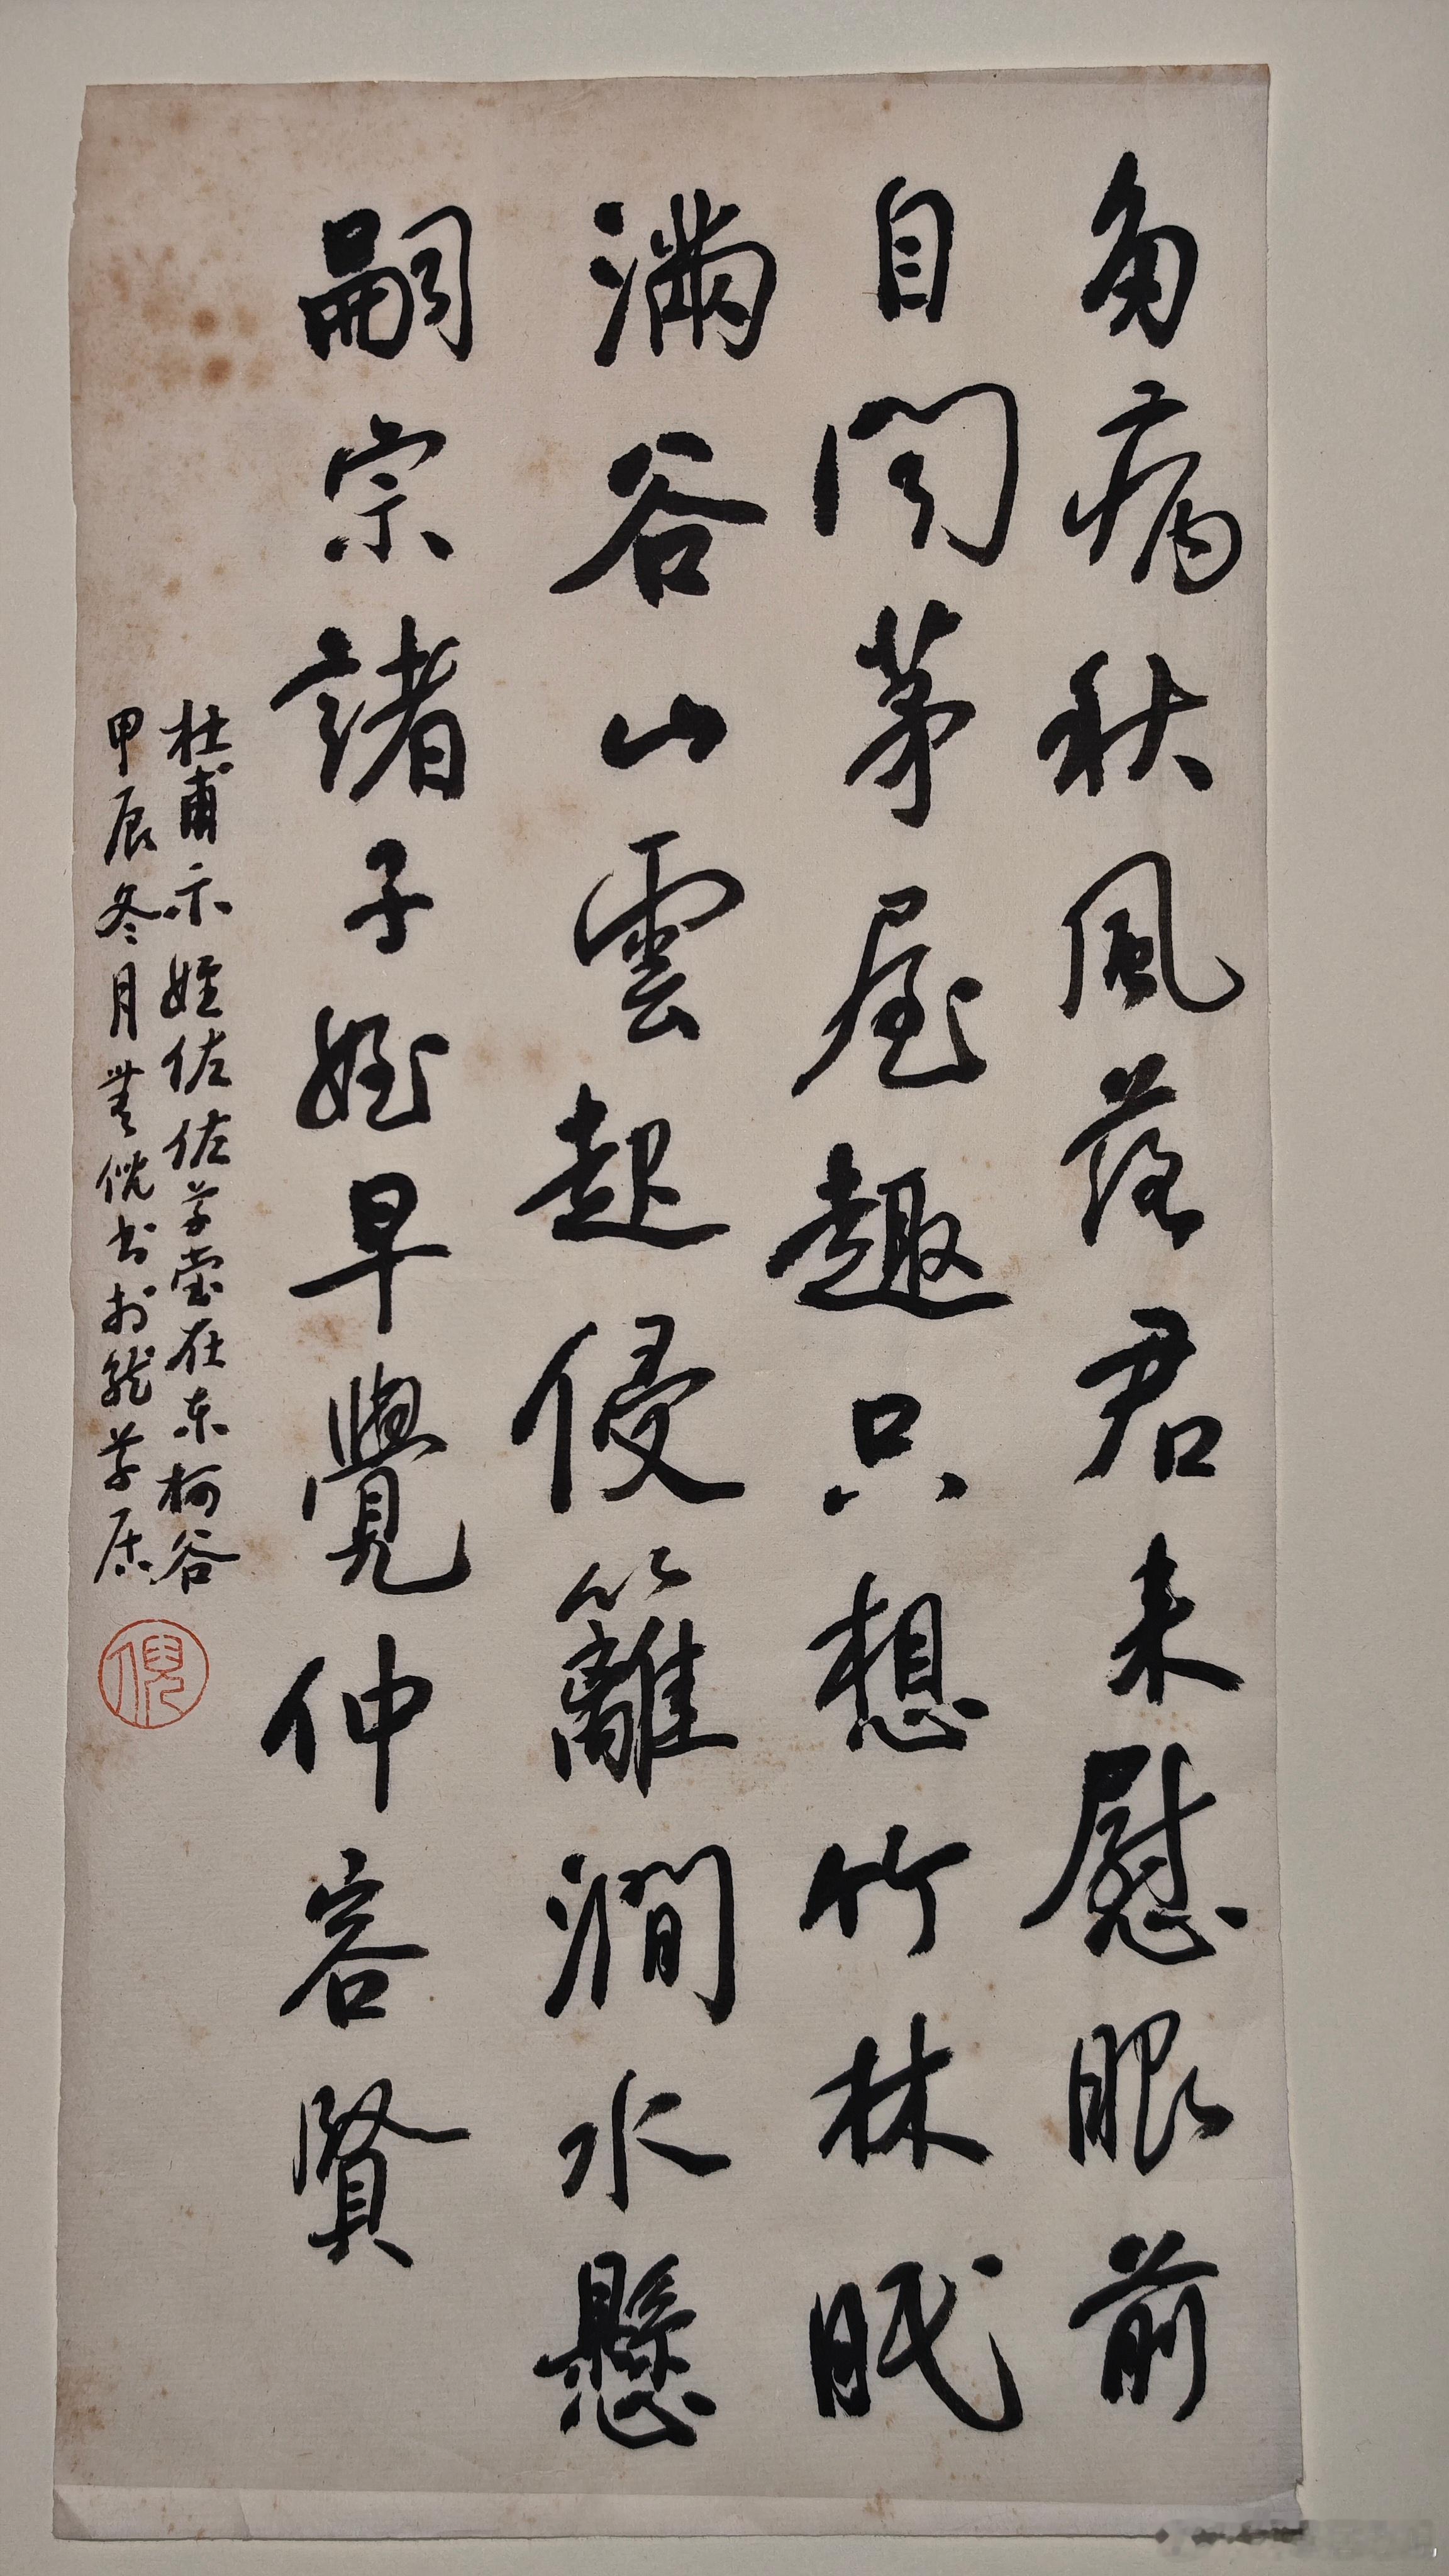 多病秋風落君来慰眼前
自闻茅屋趣只想竹林眠
满谷山雲起侵籬澗水懸
嗣宗諸子姪早覺仲容賢
杜甫示姪佐佐草堂在东柯谷
甲辰冬月 倪书于龙草居
倪